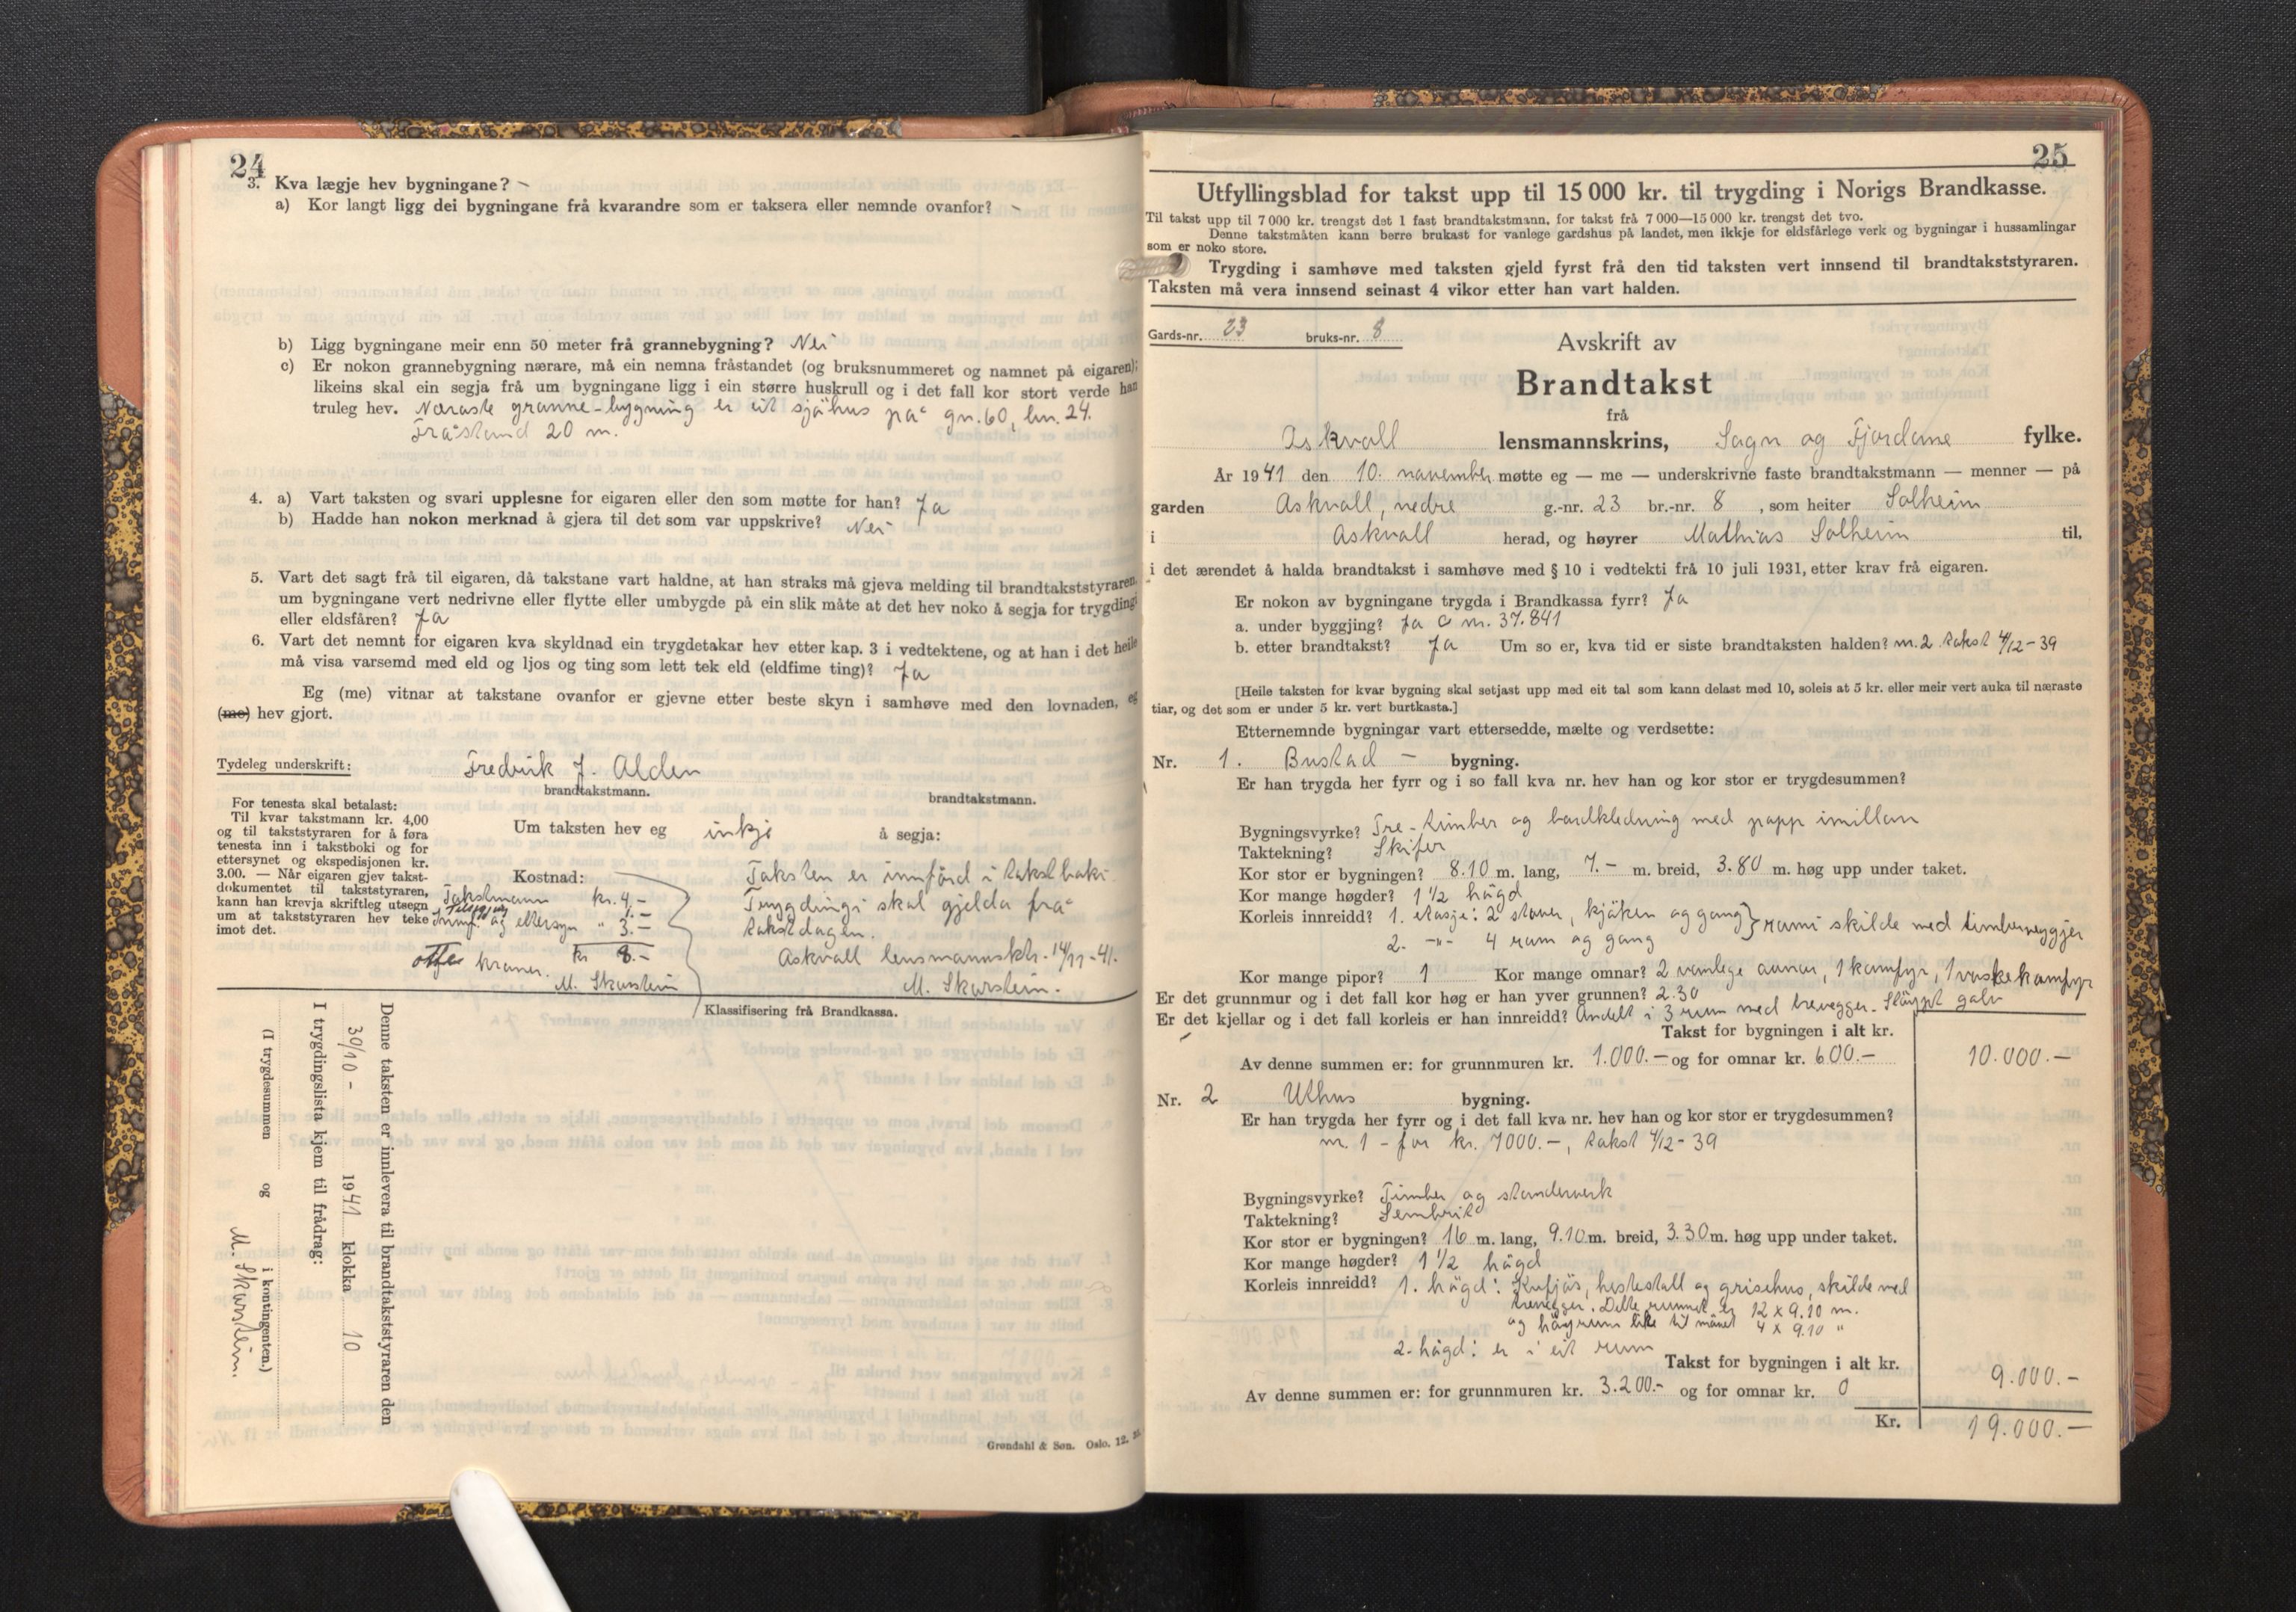 24
3. Kva lægje hev bygningane? –
a) Kor langt ligg dei bygningane frå kvarandre som er taksera eller nemnde ovanfor? –
b) Ligg bygningane meir enn 50 meter frå grannebygning? Nei
c) Er nokon grannebygning nærare, må ein nemna fråstandet (og bruksnummeret og namnet på eigaren);
likeins skal ein segja frå um bygningane ligg i ein større huskrull og i det fall kor stort verde han
truleg hev. Næraste granne-bygning er eit sjåhus på gn. 60, bn. 24.
Fråstand 20 m.
4. a) Vart taksten og svari upplesne for eigaren eller den som møtte for han? Ja
b) Hadde han nokon merknad å gjera til det som var uppskrive? Nei
5. Vart det sagt frå til eigaren, då takstane vart haldne, at han straks må gjeva melding til brandtakststyraren,
um bygningane vert nedrivne eller flytte eller umbygde på ein slik måte at det hev noko å segja for trygdingi
eller eldsfåren? Ja
6. Vart det nemnt for eigaren kva skyldnad ein trygdetakar hev etter kap. 3 i vedtektene, og at han i det heile
må visa varsemd med eld og ljos og ting som lett tek eld (eldfime ting)? Ja
Eg (me) vitnar at takstane ovanfor er gjevne etter beste skyn i samhøve med den lovnaden, eg
(me) hev gjort.
Tydeleg underskrift: Fredrik J. Alden
brandtakstmann. brandtakstmann.
For tenesta skal betalast:
Til kvar takstmann kr. 4,00
og til takststyraren for å føra
tenesta inn i takstboki og for
ettersynet og ekspedisjonen kr.
3.00. — Når eigaren gjev takst-
dokumentet til takststyraren,
kann han krevja skriftleg utsegn
um at takststyraren hev teke
imot det.
Um taksten hev eg inkje å segja:
Kostnad:
Takstmann kr. 4,–
1.–
og ettersyn " 3.–
kr 8.–
otte kroner.
M. Skarstein
Taksten er innförd i takstboki.
Trygdingi skal gjelda frå
takstdagen.
Askvoll lensmannsktr. 14/11-41.
M. Skarstein.
Klassifisering frå Brandkassa.
Denne taksten er innlevera til brandtakststyraren den
30/10 - 1941 klokka 10
I trygdingslista kjem til frådrag:
(I trygdesummen og i kontingenten.)
M. Skarstein.
Grøndahl & Søn. Oslo. 12.
25
Utfyllingsblad for takst upp til 15 000 kr. til trygding i Norigs Brandkasse.
Til takst upp til 7 000 kr. trengst det 1 fast brandtakstmann, for takst frå 7 000—15 000 kr. trengst det tvo.
Denne takstmåten kann berre brukast for vanlege gardshus på landet, men ikkje for eldsfårlege verk og bygningar i hussamlingar
som er noko store.
Trygding i samhøve med taksten gjeld fyrst frå den tid taksten vert innsend til brandtakststyraren.
Taksten må vera innsend seinast 4 vikor etter han vart halden.
Gards-nr. 23 bruks-nr. 8
Avskrift av
Brandtakst
frå
Askvoll lensmannskrins, Sogn og Fjordane fylke.
År 1941 den 10. november møtte eg — me — underskrivne faste brandtakstmann — menner — på
garden Askvoll, nedre g.-nr. 23 br.-nr. 8 , som heiter Solheim
i Askvoll herad, og høyrer Mathias Solheim til,
i det ærendet å halda brandtakst i samhøve med § 10 i vedtekti frå 10 juli 1931, etter krav frå eigaren.
Er nokon av bygningane trygda i Brandkassa fyrr? Ja
a. under byggjing? Ja C nr. 37.841
b. etter brandtakst? Ja Um so er, kva tid er siste brandtaksten halden? nr. 2 takst 4/12-39
[Heile taksten for kvar bygning skal setjast upp med eit tal som kann delast med 10, soleis at 5 kr. eller meir vert auka til næraste
tiar, og det som er under 5 kr. vert burtkasta.]
Etternemnde bygningar vart ettersedde, mælte og verdsette:
Nr. 1. Bustad – bygning.
Er han trygda her fyrr og i so fall kva nr. hev han og kor stor er trygdesummen?
Bygningsvyrke? Tre - timber og bordkledning med papp imillom
Taktekning? Skifer
Kor stor er bygningen? 8.10 m. lang, 7.– m. breid, 3.80 m. høg upp under taket.
Kor mange høgder? 1½ högd
Korleis innreidd? 1. etasje: 2 stover, kjöken og gang } romi skilde med timberveggjer
2. –"– 4 rom og gang
Kor mange pipor? 1 Kor mange omnar? 2 vanlege omnar, 1 komfyr, 1 vaskekomfyr
Er det grunnmur og i det fall kor høg er han yver grunnen? 2.30
Er det kjellar og i det fall korleis er han innreidd? Andelt i 3 rum med trevegger. Stöypt golv
Takst for bygningen i alt kr.
Av denne summen er: for grunnmuren kr. 1.000.– og for omnar kr. 600.– 10.000.–
Nr. 2 Uthus bygning.
Er han trygda her fyrr og i det fall kva nr. hev han og kor stor er trygdesummen?
nr. 1 - for kr. 7000.–, takst 4/12-39
Bygningsvyrke? Timber og standerverk
Taktekning? Sembrit
Kor stor er bygningen? 16 m. lang, 9.10 m. breid, 3.30 m. høg upp under taket.
Kor mange høgder? 1½ högd
Korleis innreidd? 1. högd: Kufjös, hestestall og grisehus, skilde med
trevegger. Dette rummet er 12 x 9.10 m.
og höyrum like til mönet 4 x 9.10 "
2. högd: er i eit rum
Takst for bygningen i alt kr.
9.000.–
Av denne summen er: for grunnmuren kr. 3.200.– og for omnar kr. 0
Kr. 19.000.–